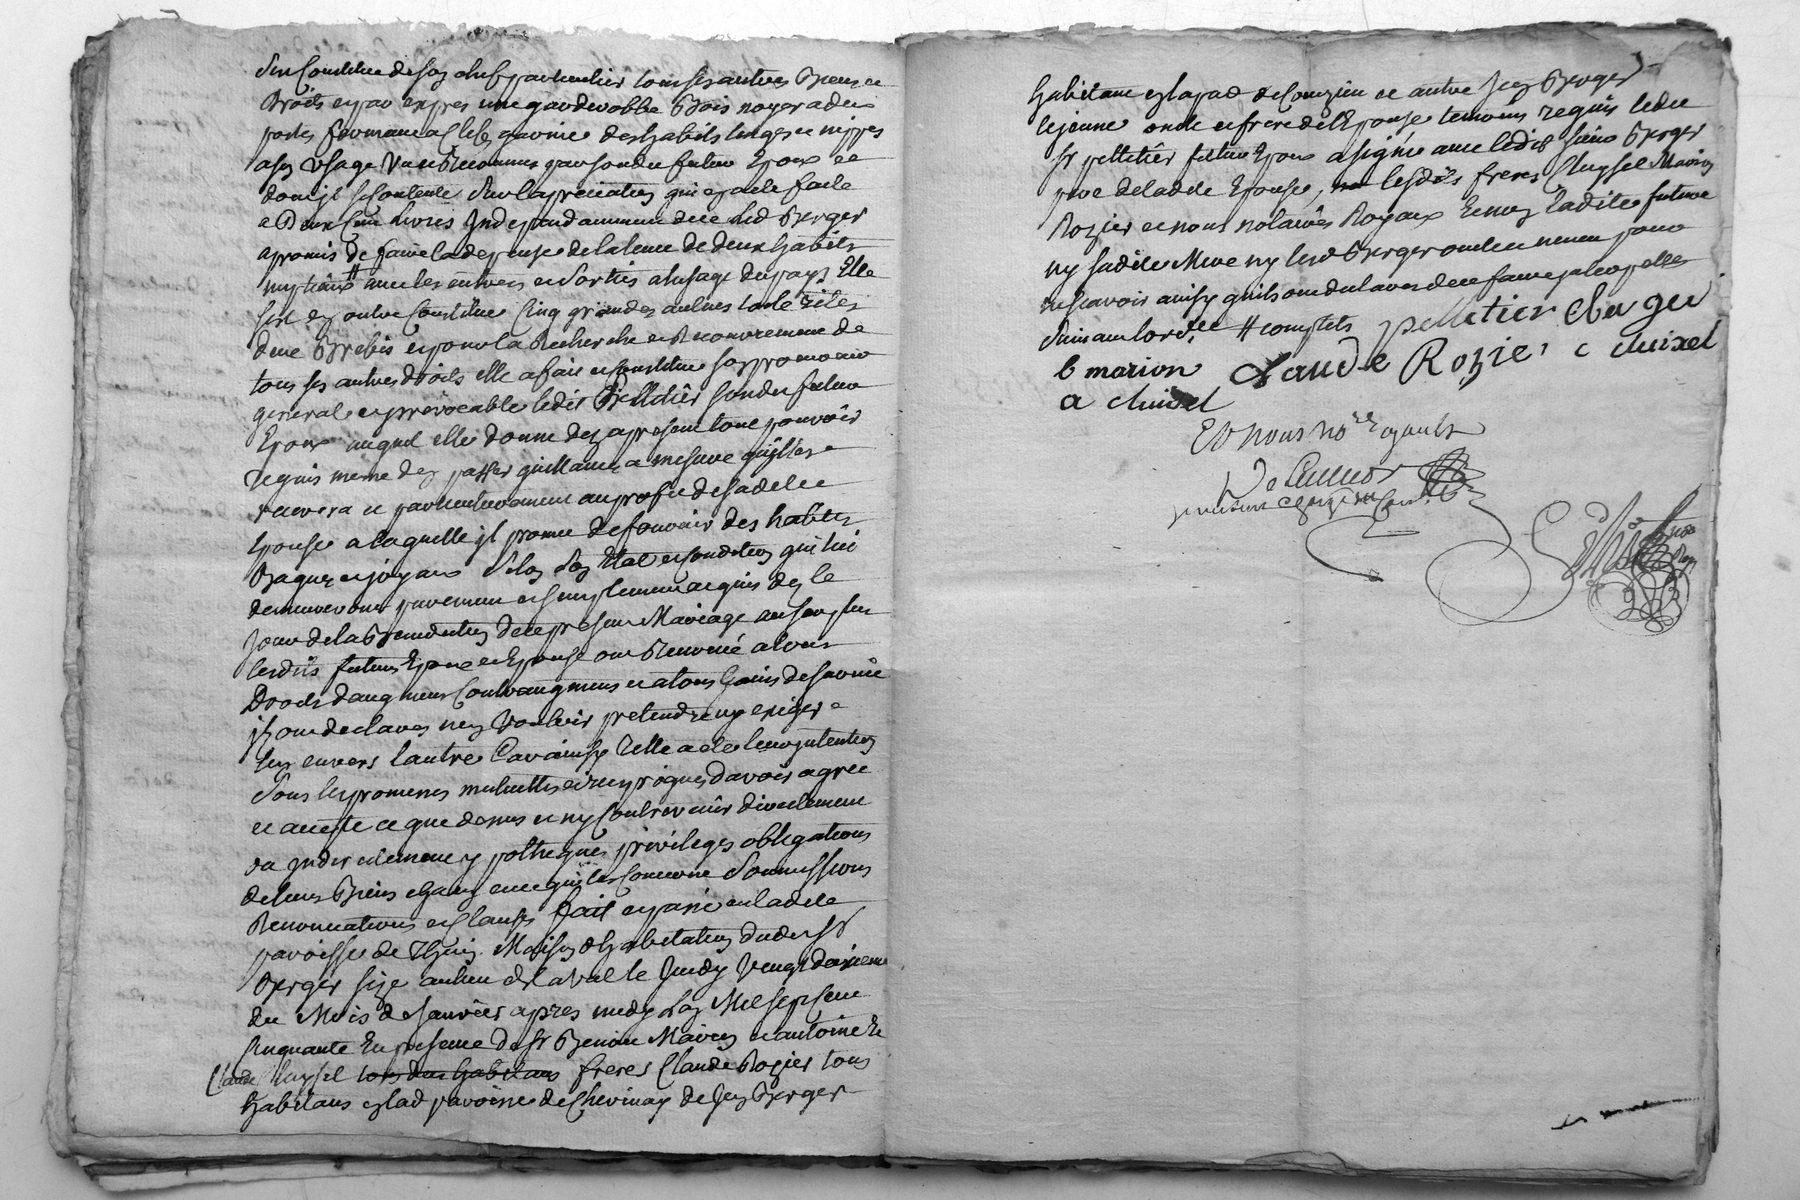 Sur Constitue de son chef particulier tous ses autres Biens et
Droits et par expres une garderobbe Bois noyer a deux
portes fermant a Clefs garnie des habits linges et nippes
a son Usage Vu et Reconnus par sondit futur Epoux et
dont jl se Contente Sur lapreciation qui en a ete faite
a Deux Cent livres Independamment de ce led Berger
a promis de faire la depense de la de deux habits
# avec les entrees et Sorties a lusage du pays Elle
sest en outre Constitue Cinq grandes autres
de Brebis et pour la Recherche et Recouvrement de
tous ses autres droits elle a fait et Constitue son procureur
general et jrrevocable ledit Pelletier sondit futur
Epoux auquel elle donne des a present tout pouvoir
requis meme den passer quittances a mesure quil les
recevra et particulierement au profit de sadite
Epouse a laquelle jl promet de fournir des habits
Bagues et joyaux Selon Son Etat et Condition qui lui
demeureront purement et simplement acquis des le
Jour de la Benediction de ce present Mariage au surplus
lesdits futurs Epoux et Epouse ont Renoncé a tous
Droits daugment Contraugment et a tous Gains de survie
jls ont declares nen Vouloir pretendre ny exiger
lun envers lautre Car ainsi Telle a ete leur jntention
Sous les promesses mutuelles et reciproques davoir agree
et accepte ce que dessus et ny Contrevenir directement
ou jndirectement ypotheques privileges obligations
de leurs Biens chacun en ce quil les Concerne Soumissions
Renonciations et Clauses fait et passé en ladite
paroisse de Maison dhabitation dudit Sr
Berger size au lieu de laval le Jeudy Vingt deuxieme
du Mois de Janvier apres midy Lan Mil sept Cent
Cinquante En presence de Sr Benoit Marion et antoine Et
Claude Chuysel tous deux habitans freres Claude Rozier tous
habitans en lad paroisse de Chevinay de Jean Berger
habitant en la pad de Courzieu et autre Jean Berger
le jeune oncle et frere de lEpouse temoins requis ledit
Sr pelletier futur Epoux a signé avec ledit Sieur Berger
pere de ladite Epouse, lesdits freres Chuysel Marion
Rozier et nous notaires Royaux Et non Ladite future
ny sadite Mere ny lesd Berger oncle et neveu pour
ne scavoir ainsy quils ont declares de ce faire jnterpelles
Suivant lordce # complets pelletier Berger
b marion Claude Rozier c chuixel
a chuixel
Et Nous nores royaux